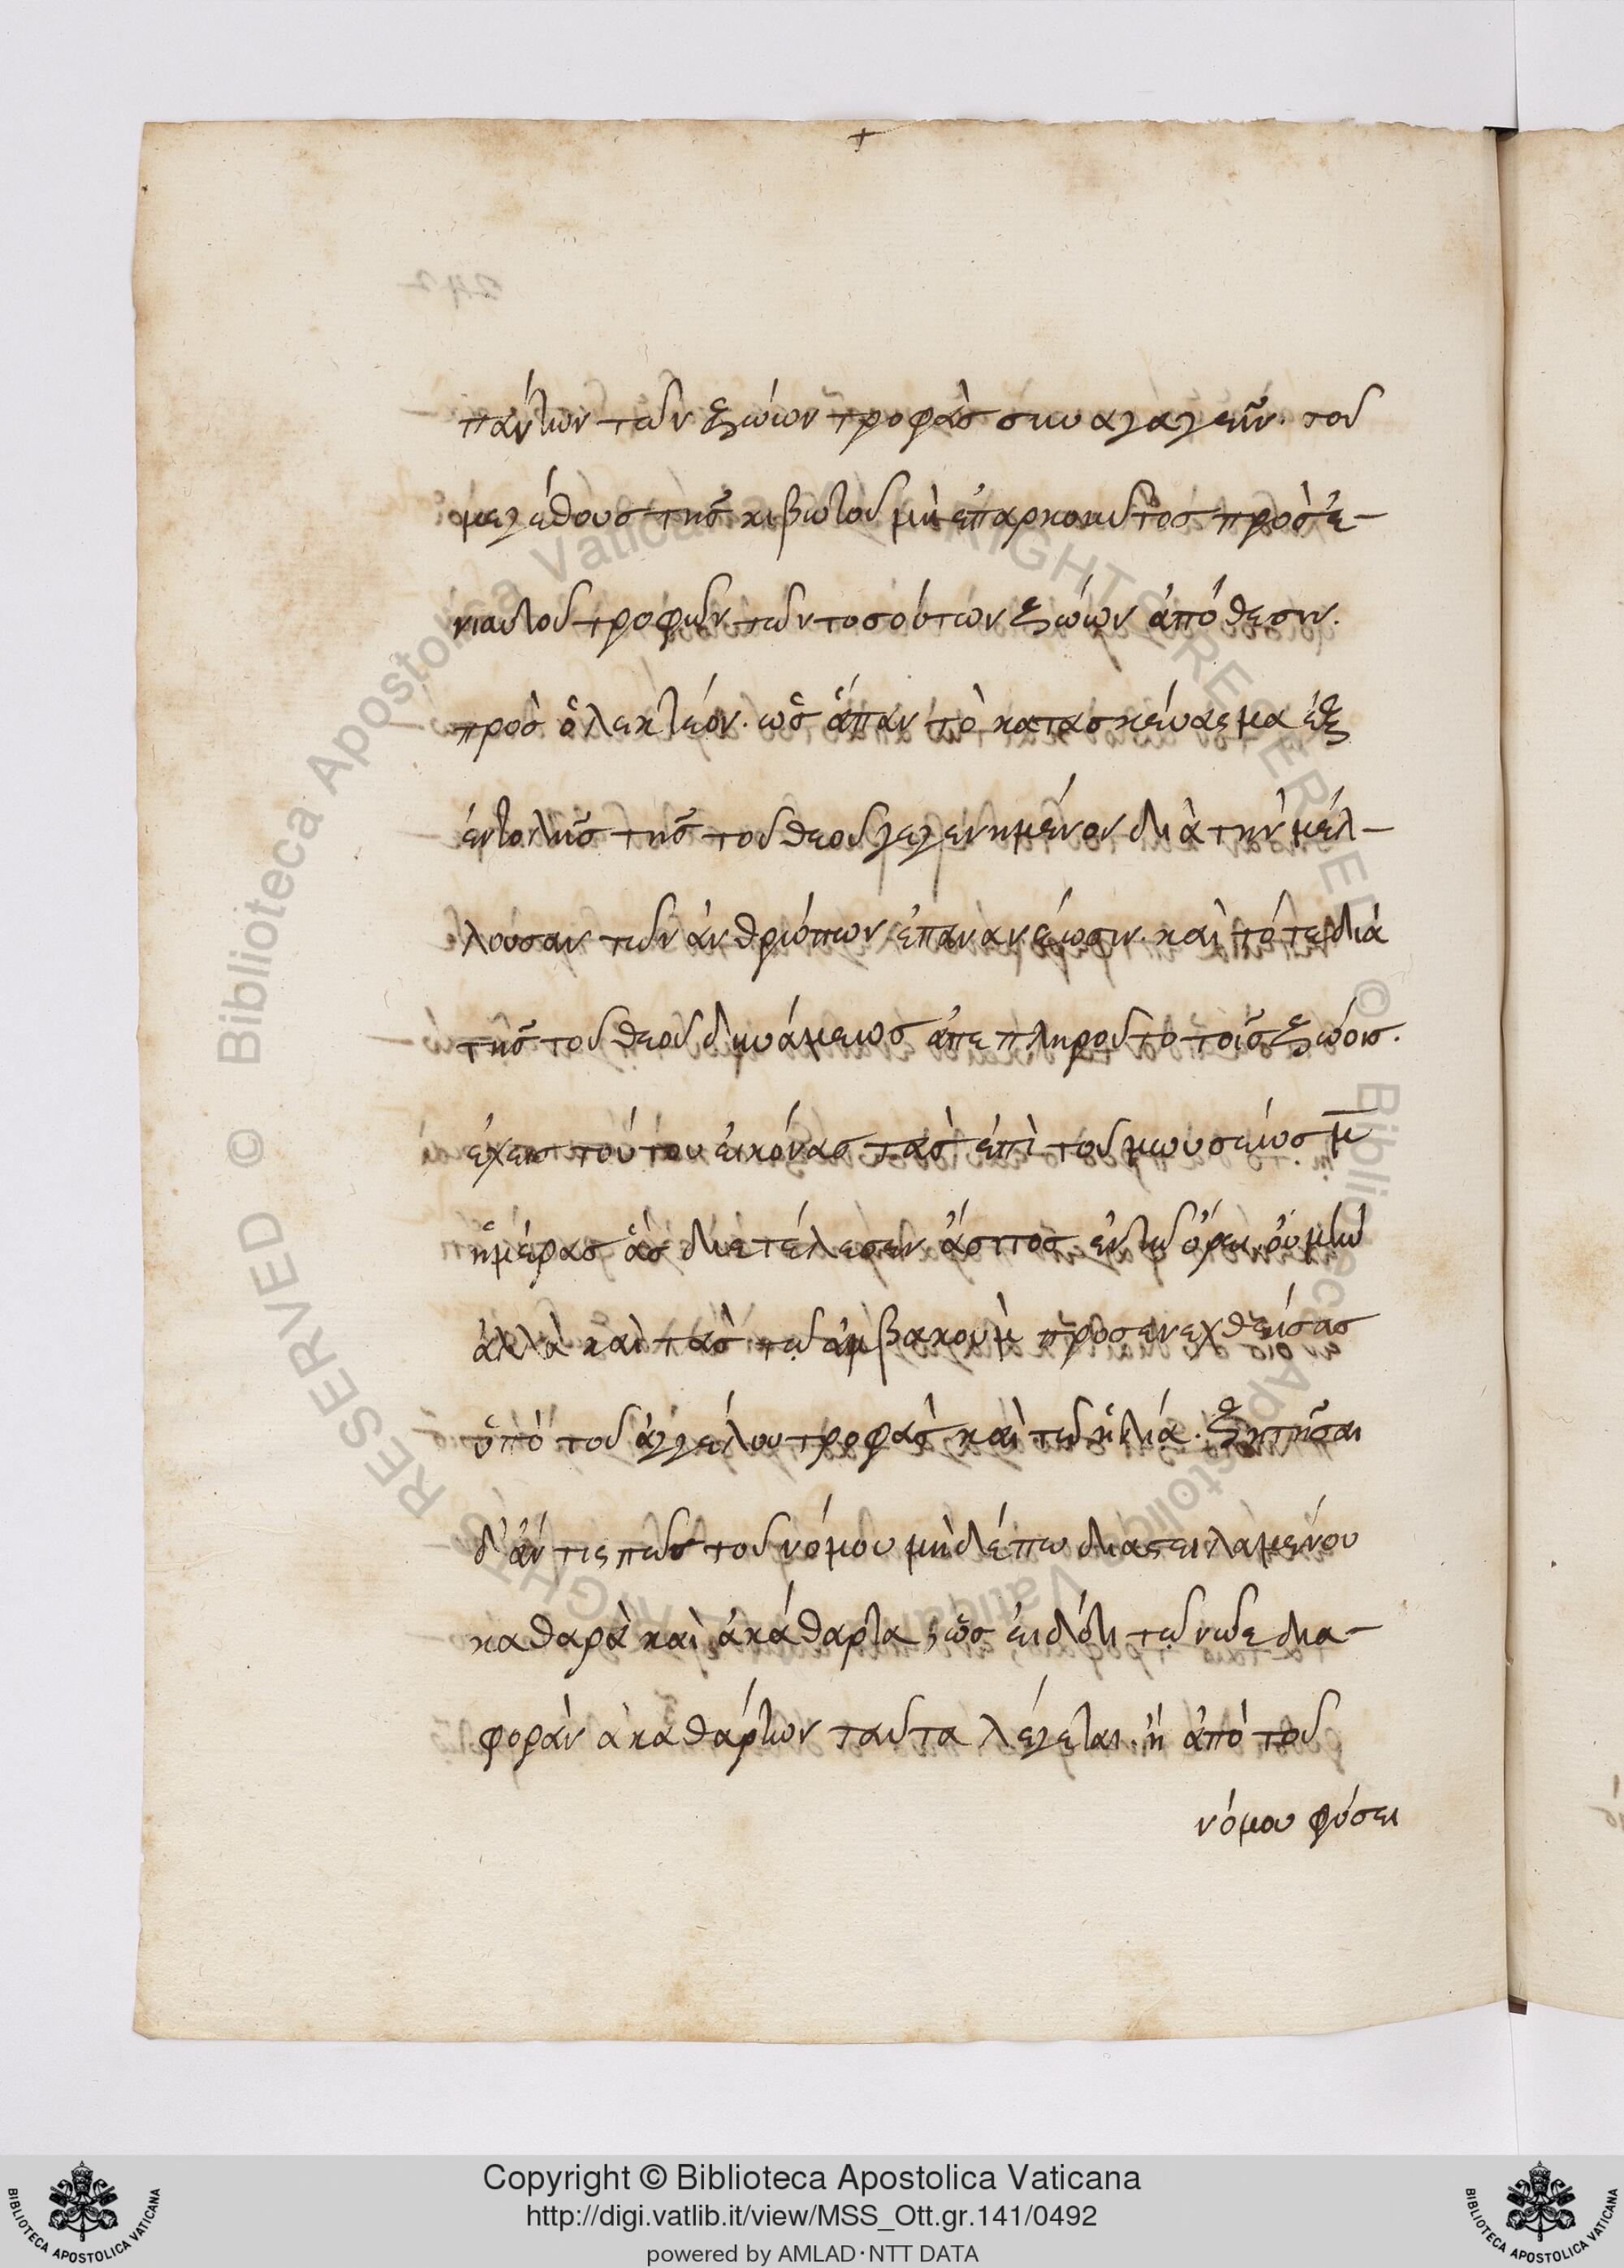 +
πάντων τῶν ζώων τροφὰς συναγαγεῖν. τοῦ
μεγέθους τῆς κιβωτοῦ μὴ ἐπαρκοῦντος πρὸς ἐ-
νιαυτοῦ τροφῶν τῶν τοσούτων ζώων ἀπόθεσιν.
πρὸς ὃ λεκτέον. ὡς ἅπαν τὸ κατασκεύασμα ἐξ
ἐντολῆς τῆς τοῦ θεοῦ γεγενημένον διὰ τὴν μέλ-
λουσαν τῶν ἀνθρώπων ἐπανανέωσιν. καὶ τότε διὰ
τῆς τοῦ θεοῦ δυνάμεως ἀπεπληροῦτο τοῖς ζώοις.
ἔχεις τούτου εἰκόνας τὰς ἐπὶ τοῦ μωυσέως μ̅
ἡμέρας ἃς διετέλεσεν ἄσιτος ἐν τῷ ὄρει. οὐ μὴν
ἀλλὰ καὶ τὰς τῷ ἀμβακοὺμ προσενεχθείσας
ὑπὸ τοῦ ἀγγέλου τροφὰς καὶ τῷ ἠλιά. ζητῆσαι
δ' ἄν τις πῶς τοῦ νόμου μηδέπω διαστειλαμένου
καθαρὰ καὶ ἀκάθαρτα, ὡς εἰδότι τῷ νῶε δια-
φορὰν ἀκαθάρτων ταῦτα λέγεται. ἢ ἀπὸ τοῦ
νόμου φύσει
Copyright © Biblioteca Apostolica Vaticana
http://digi.vatlib.it/view/MSS_Ott.gr.141/0492
powered by AMLAD·NTT DATA
BIBLIOTECA APOSTOLICA VATICANA
BIBLIOTECA APOSTOLICA VATICANA